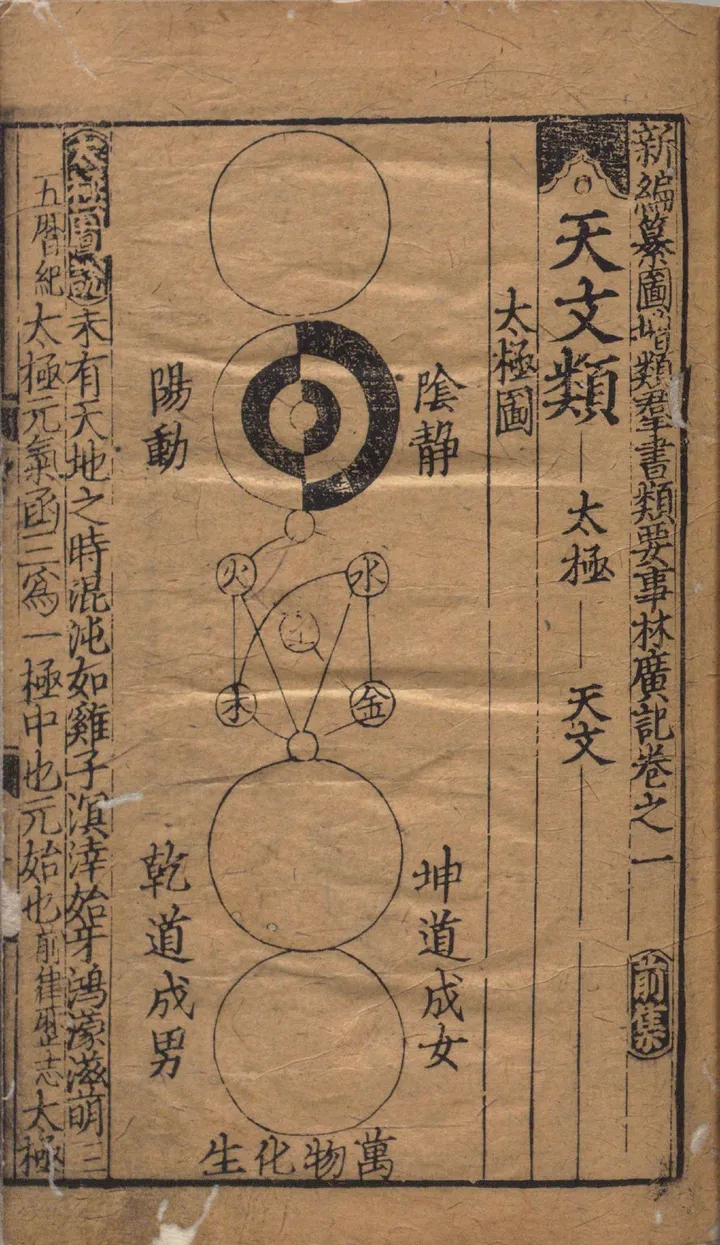 新編纂圖增類羣書類要事林廣記卷之一 前集
天文類 太極 天文
太極圖
陰靜
陽動
水
火
土
金
木
坤道成女
乾道成男
萬物化生
太極圖說 未有天地之時混沌如雞子溟涬始牙鴻濛滋萌三
五曆紀 太極元氣函三爲一極中也元始也前律曆志太極